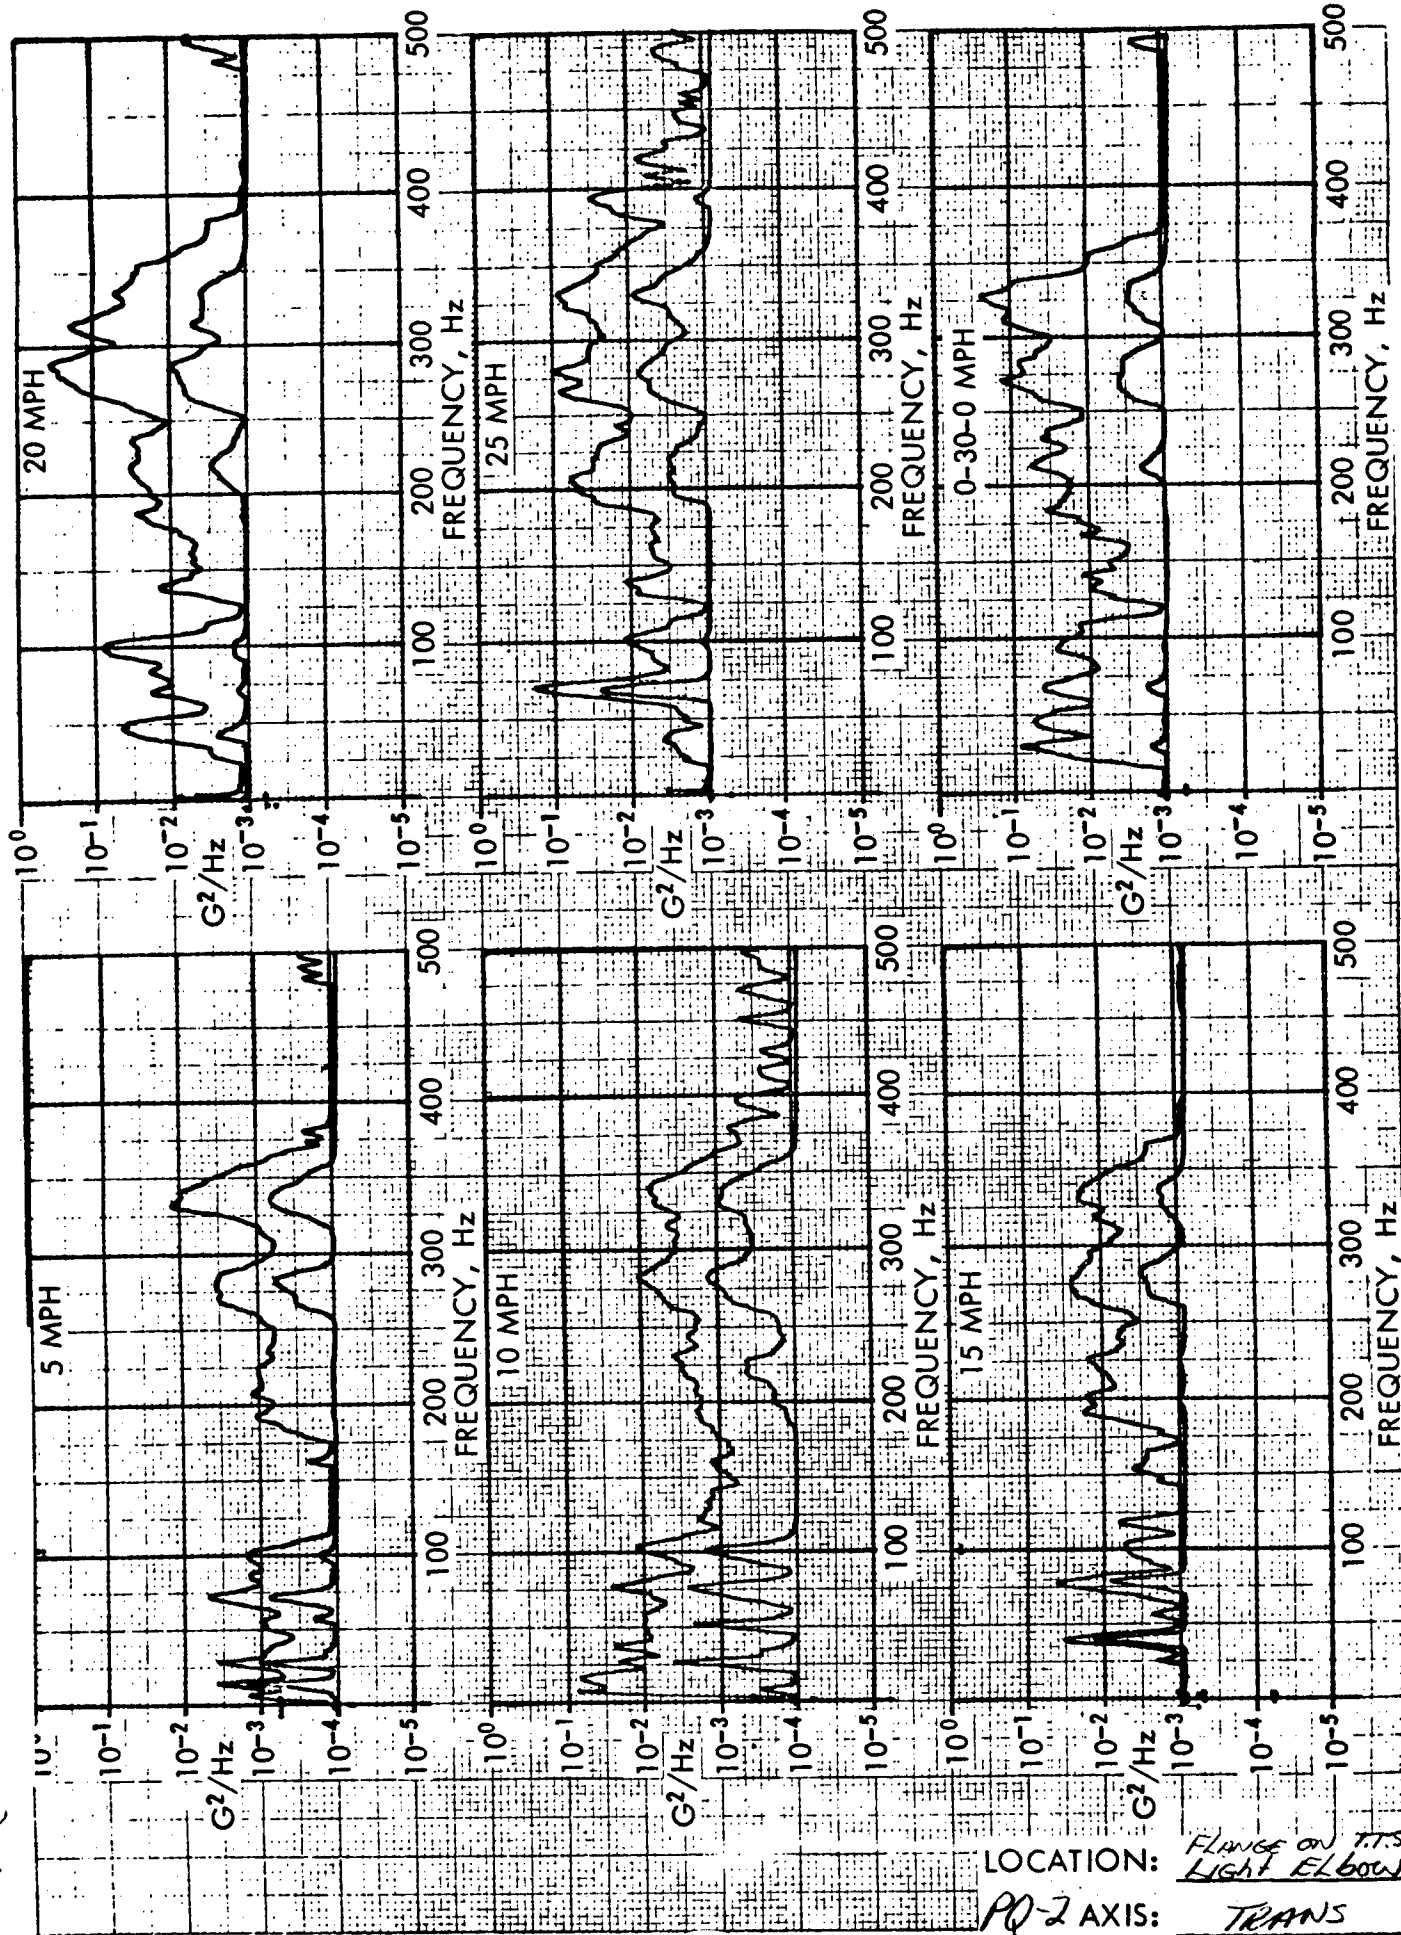 5 MPH
10⁻¹
10⁻²
10⁻³
10⁻⁴
10⁻⁵
G²/Hz
100
200
300
400
500
FREQUENCY, Hz
20 MPH
10⁰
10⁻¹
10⁻²
10⁻³
10⁻⁴
10⁻⁵
G²/Hz
100
200
300
400
500
FREQUENCY, Hz
10 MPH
10⁰
10⁻¹
10⁻²
10⁻³
10⁻⁴
10⁻⁵
G²/Hz
100
200
300
400
500
FREQUENCY, Hz
25 MPH
10⁰
10⁻¹
10⁻²
10⁻³
10⁻⁴
10⁻⁵
G²/Hz
100
200
300
400
500
FREQUENCY, Hz
15 MPH
10⁰
10⁻¹
10⁻²
10⁻³
10⁻⁴
10⁻⁵
G²/Hz
100
200
300
400
500
FREQUENCY, Hz
0-30-0 MPH
10⁰
10⁻¹
10⁻²
10⁻³
10⁻⁴
10⁻⁵
G²/Hz
100
200
300
400
500
FREQUENCY, Hz
LOCATION: FLANGE ON T.T.S
Light ELbow
PQ-2 AXIS: TRANS